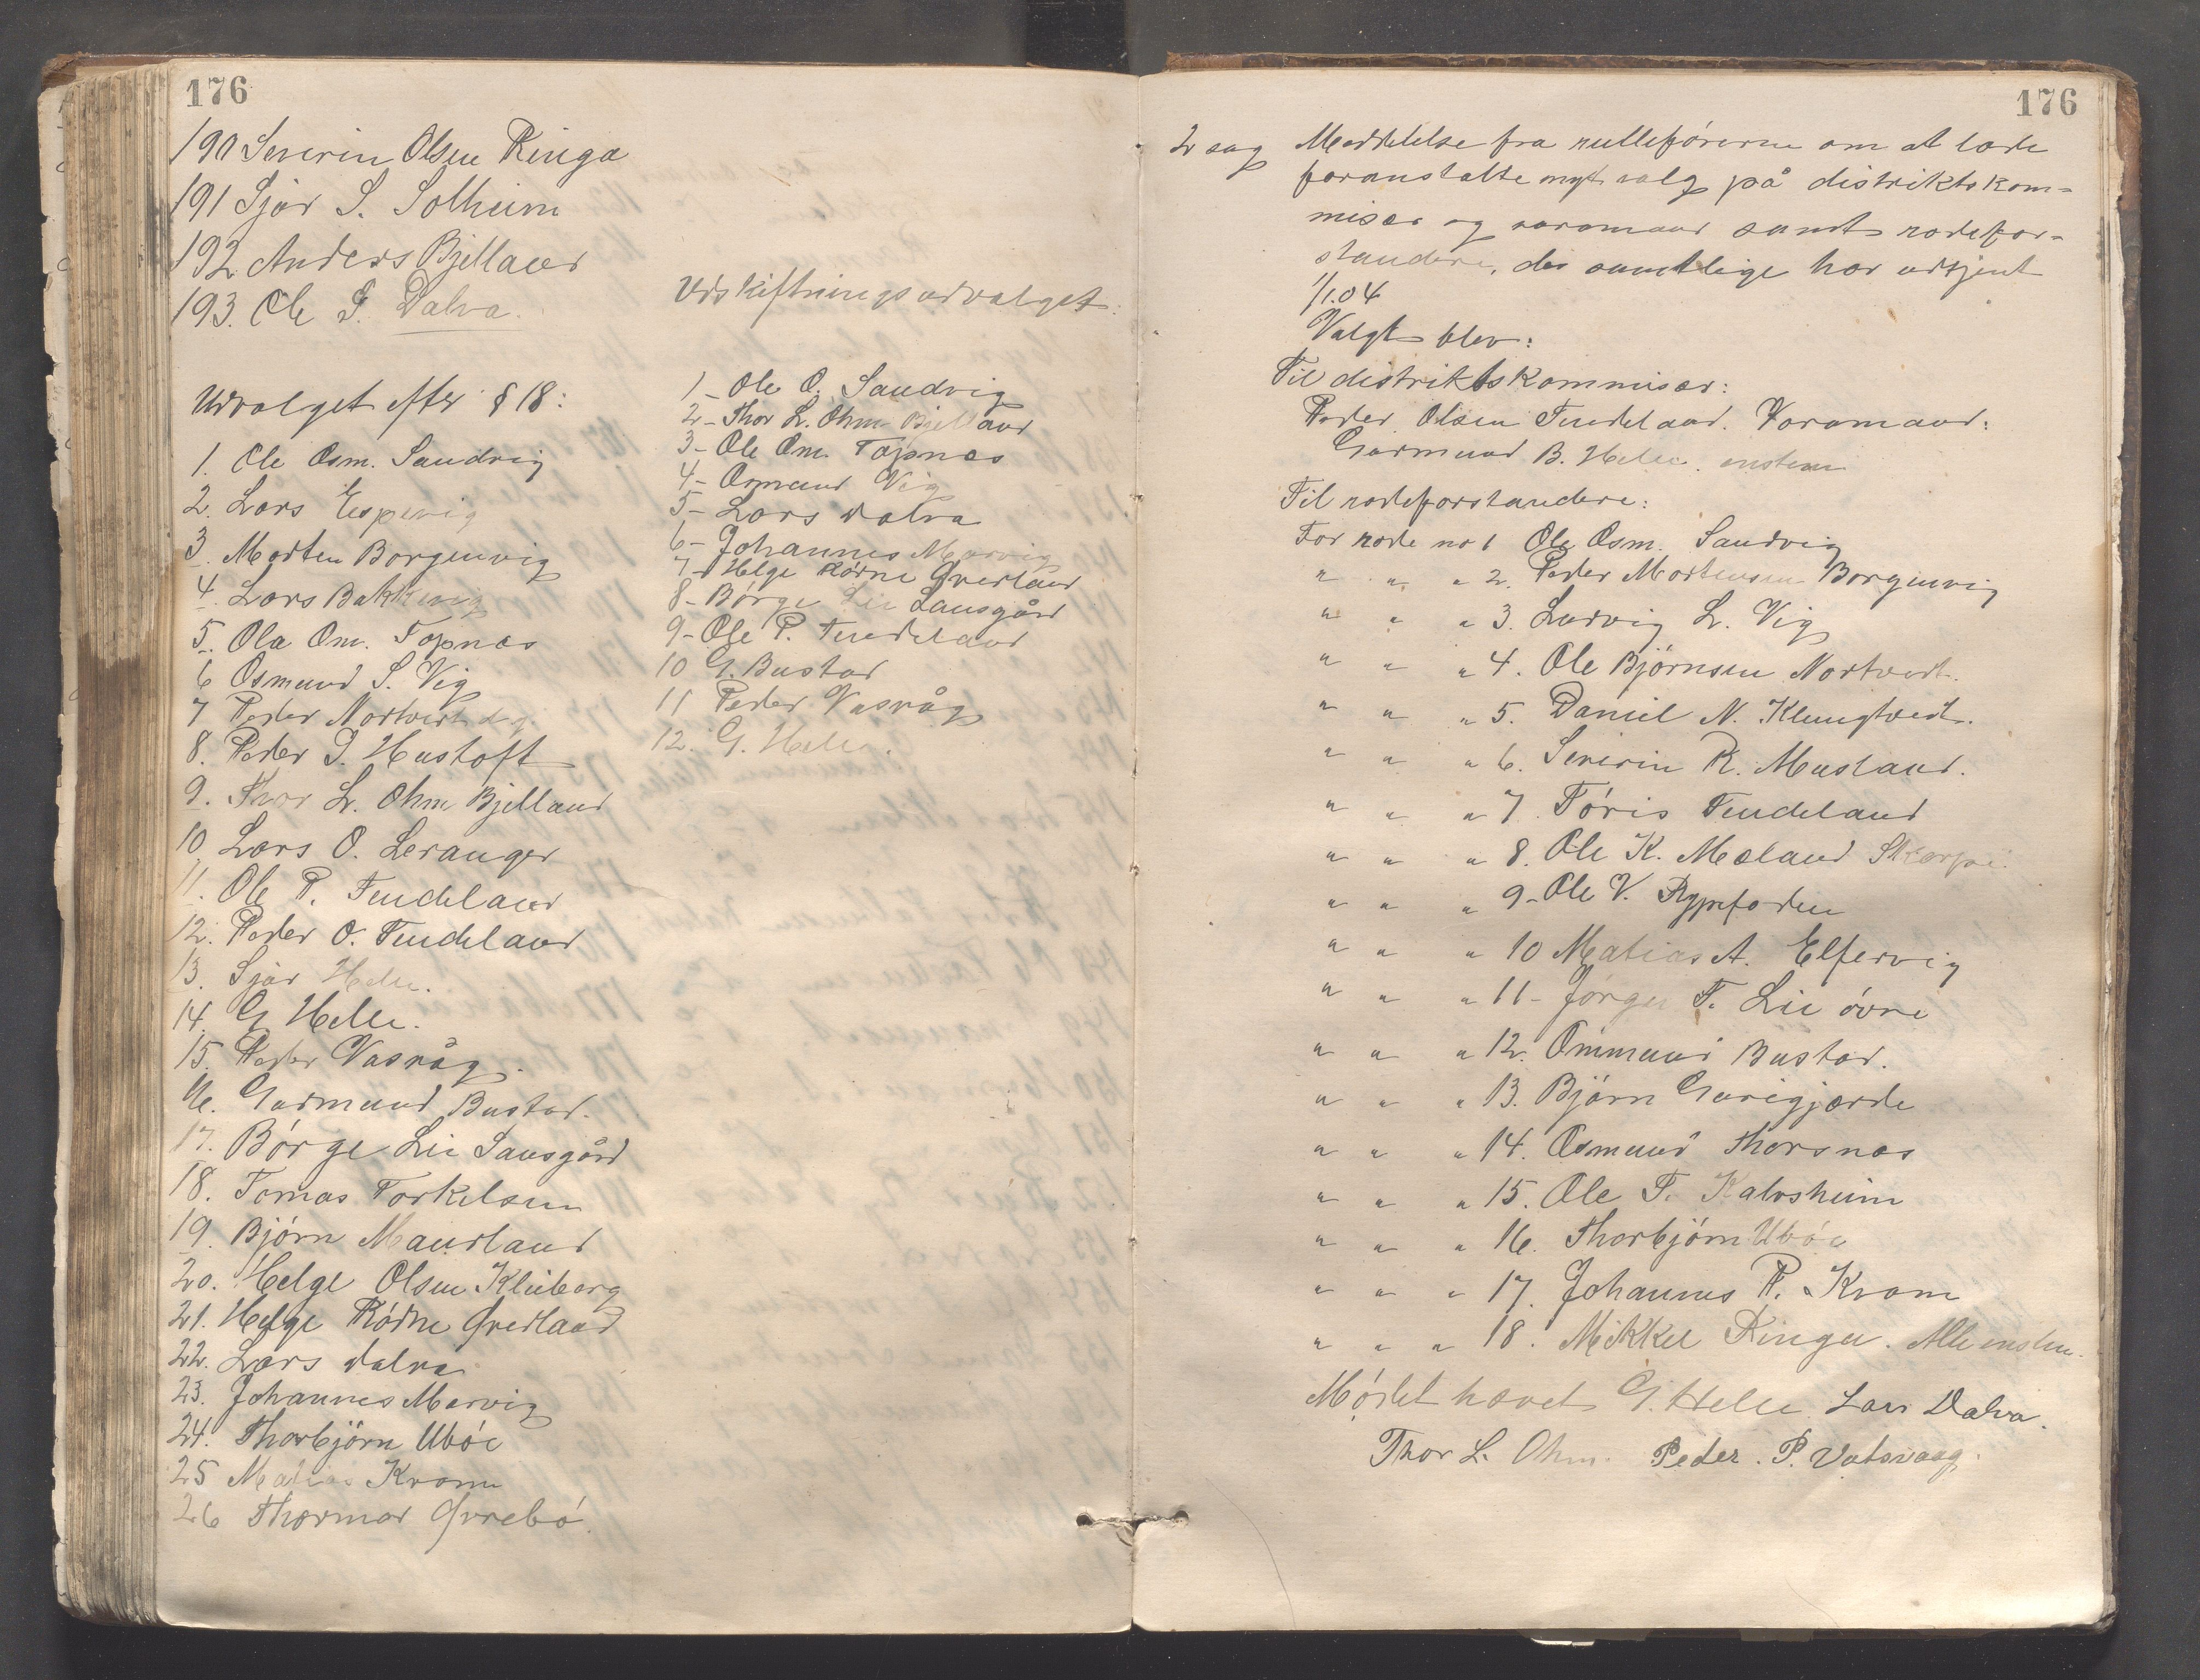 176
190 Severin Olsen Ringa
191 Sjur S. Solheim
192 Anders Bjelland
193. Ole I. Dalva.
Udvalget efter § 18:
1. Ole Osm. Sandvig
2. Lars Espevig
3. Morten Borgenvig
4. Lars Bakkevig
5. Ola Om. Topnæs
6 Osmund S. Vig
7 Peder Nortveit
8. Peder I. Hustoft
9. Thor L. Ohm Bjelland
10 Lars O. Leranger
11. Ole P. Tendeland
12. Peder O. Tendeland
13. Sjur Helle.
14. G Helle.
15. Peder Vasvåg.
16. Garmund Bustad.
17. Børge Lie Sausgård
18. Tomas Torkelsen
19. Bjørn Maurland
20. Helge Olsen Kleiberg
21. Helge Rødne Øvreland
22. Lars dalva
23. Johannes Marvig
24. Thorbjörn Ubøe
25 Matias Kvame
26 Thormor Øvrebø.
Udskiftningsudvalget:
1- Ole O. Sandvig
2- Thor L. Ohm Bjelland
3- Ole Om. Topnæs
4- Osmund Vig
5- Lars dalva
6- Johannes Marvig
7- Helge Rødne Øvreland
8- Børge Lie Sausgård
9- Ole P. Tendeland
10 G. Bustad
11 Peder Vasvåg
12. G. Helle.
176
2 sag Meddelelse fra rulleførerne om at lade
foranstalte nyt valg på distriktskom-
misær og varamand samt rodefor-
standere, der samtlige har udtjent
1/1.04
Valgt blev:
Til distriktskommisær:
Peder Olsen Tendeland. Varamand:
Garmund B. Helle. enstem
Til rodeforstandere:
For rode no 1 Ole Osm. Sandvig
" " " 2. Peder Mortensen Borgenvig
" " " 3. Ludvig L. Vig
" " " 4. Ole Bjørnsen Nortveit.
" " " 5. Daniel N. Klungtveit.
" " " 6. Severin R. Mæsland.
" " " 7 Tøris Tendeland
" " " 8. Ole K. Mæland Skarpe.
" " " 9- Ole V. Rypefoden
" " " 10 Matias A. Elfervig
" " " 11- Jørgen T. Lie övre
" " " 12. Ommund Bustad.
" " " 13. Bjørn Gjerde
" " " 14. Osmund Thorsnæs
" " " 15. Ole T. Kalvsheim
" " " 16. Thorbjörn Ubøe
" " " 17. Johannes P. Kvame
" " " 18. Mikkel Ringen. Alle enstem.
Mødet hævet G. Helle Lars Dalva.
Thor L. Ohm. Peder. P. Vatsvaag.